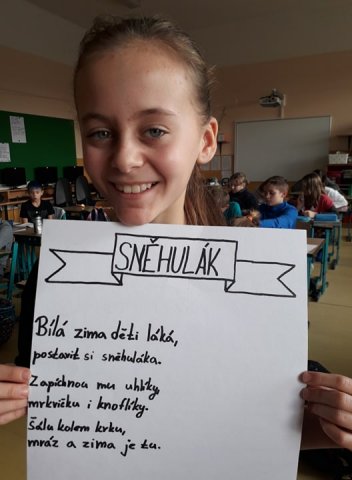 SNĚHULÁK
Bílá zima děti láká,
postavit si sněhuláka.
Zapíchnou mu uhlíky,
mrkvičku i knoflíky.
Šálu kolem krku,
mráz a zima je tu.